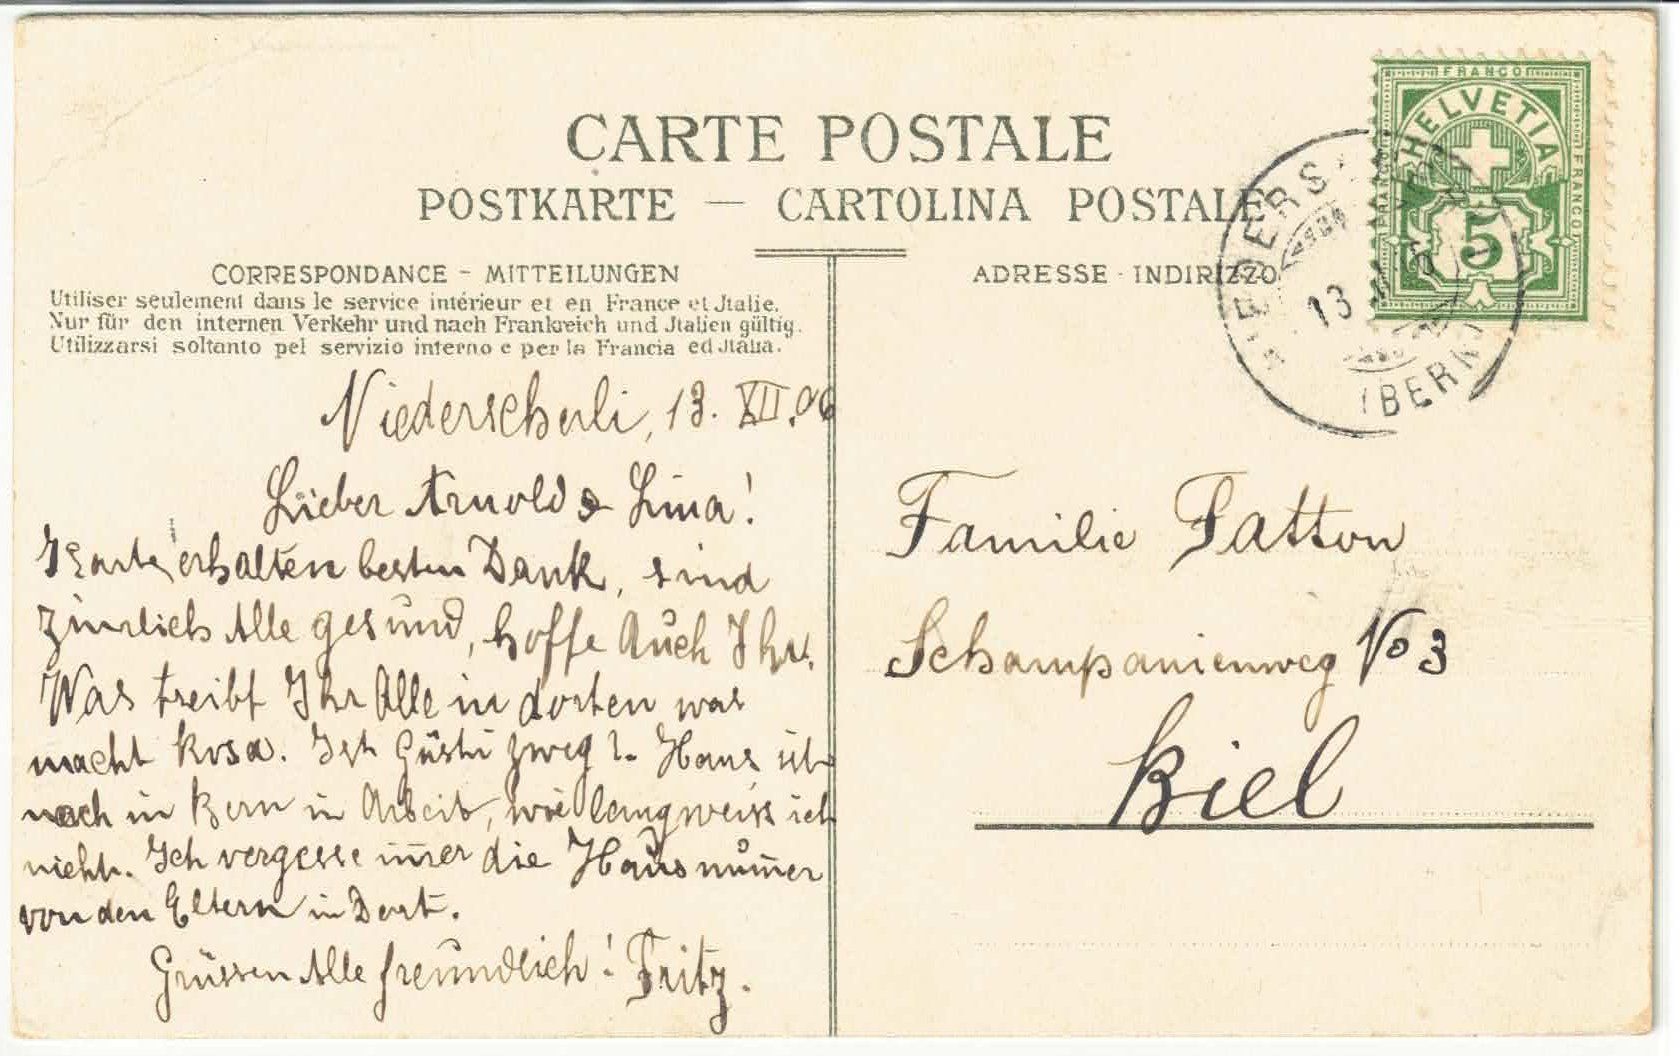 CARTE POSTALE
POSTKARTE — CARTOLINA POSTALE
CORRESPONDANCE - MITTEILUNGEN
Utiliser seulement dans le service intérieur et en France et Jtalie.
Nur für den internen Verkehr und nach Frankreich und Jtalien gültig.
Utilizzarsi soltanto pel servizio interno e per la Francia ed Jtalia.
Niederscherli, 13. XII. 06
Lieber Arnold & Lina!
Karte erhalten besten Dank, sind
zimlich Alle gesund, hoffe Auch Ihr.
Was treibt Ihr Alle in dorten was
macht Rosa. Ist Güsti zweg?. Hans ist
noch in Bern in Arbeit, wie lang weiss ich
nicht. Ich vergesse im̅er die Hausnum̅er
von den Eltern in Dort.
Grüssen Alle freundlich! Fritz.
ADRESSE - INDIRIZZO
FRANCO
HELVETIA
FRANCO
FRANCO
5
NIEDERSCH
13
(BERN)
Familie Fatton
Schampanienweg No 3
Biel